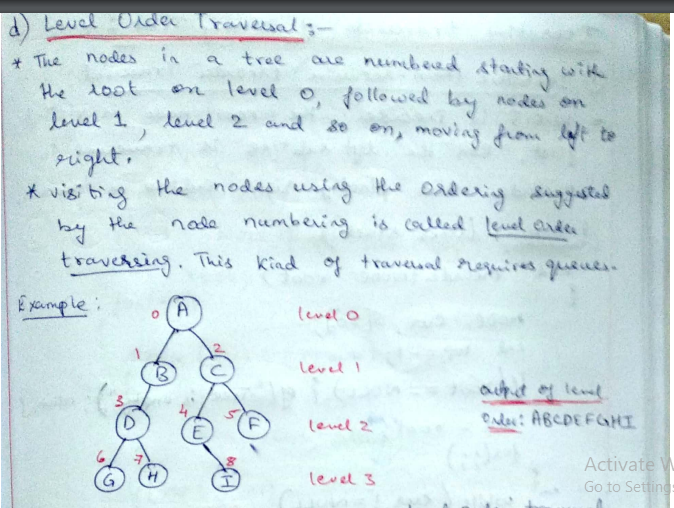 d) Level Order Traversal :-
* The nodes in a tree are numbered starting with
the root on level 0, followed by nodes on
level 1, level 2 and so on, moving from left to
right.
* visiting the nodes using the ordering suggested
by the node numbering is called level order
traversing. This kind of traversal requires queues.
Example :
0 A level 0
1 B 2 C level 1
3 D 4 E 5 F level 2
6 G 7 H 8 I level 3
output of level
Order: ABCDEFGHI
Activate W
Go to Settings